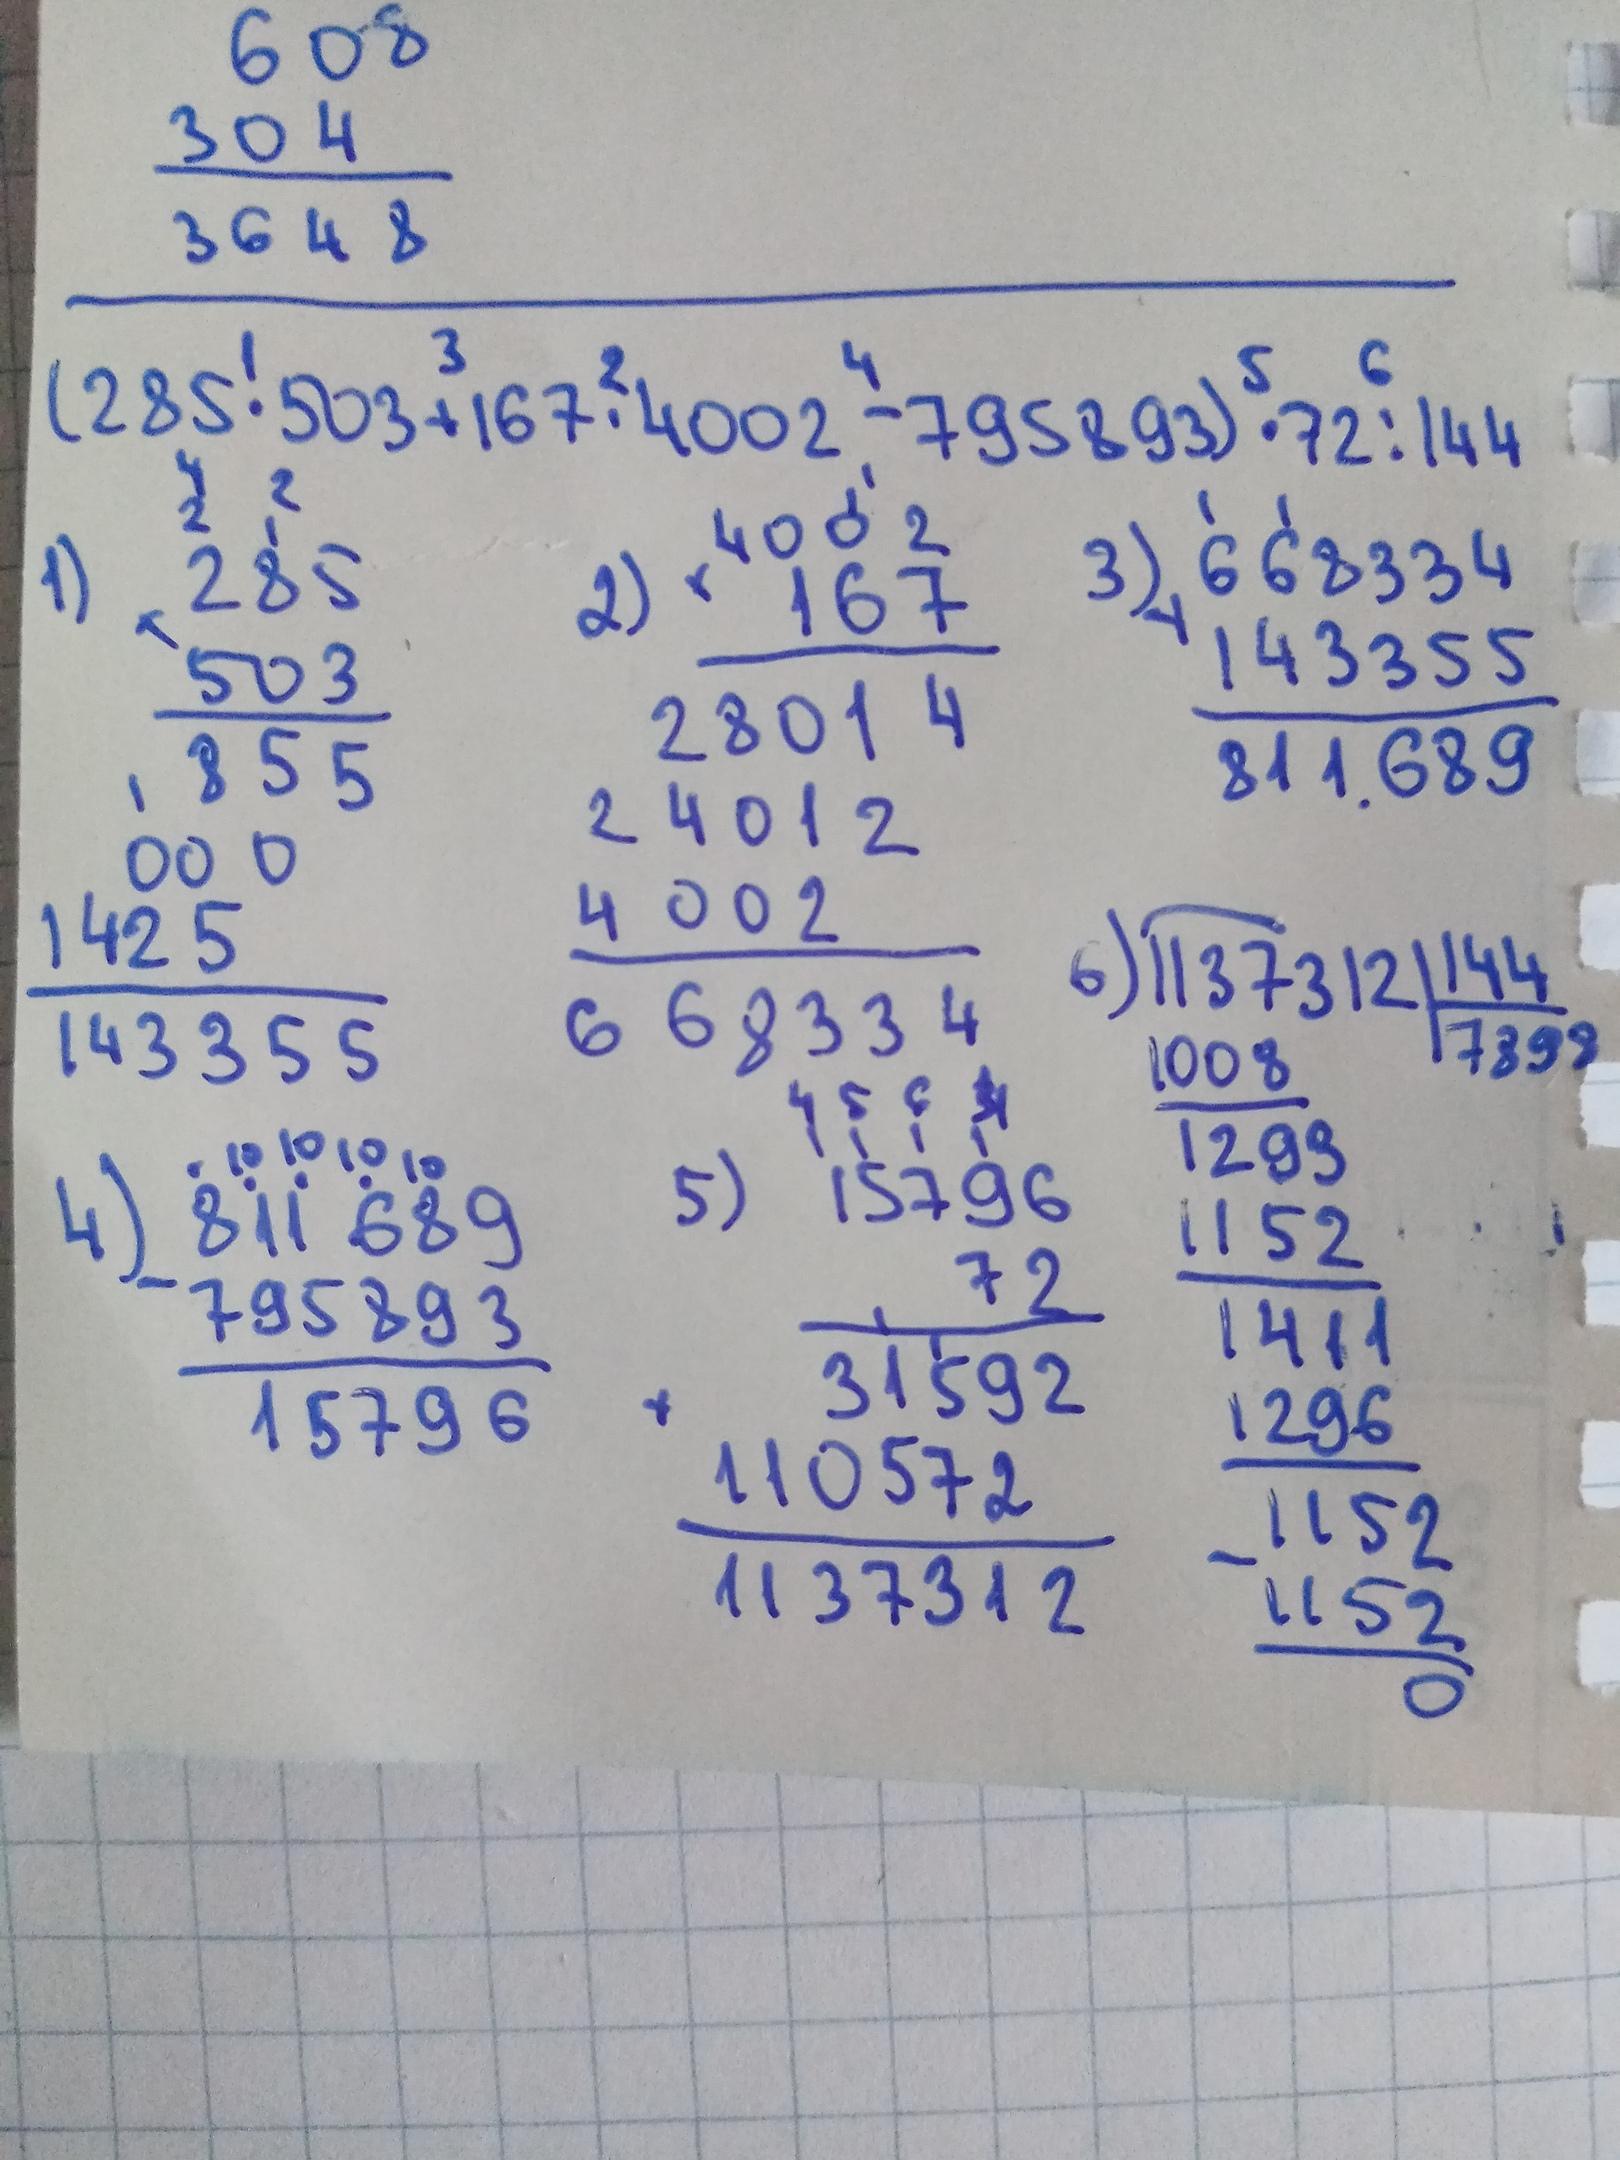 608
304
3648
(285·503+167·4002-795893)·72:144
1 3 2 4 5 6
1)
4 2
2 1
× 285
503
855
000
1425
143355
2)
1
× 4002
167
28014
24012
4002
668334
3)
1 1
+ 668334
143355
811.689
4)
10 10 10 10
- 811689
795893
15796
5)
15796
72
+ 31592
110572
1137312
6) 1137312 144
1008 7898
1293
1152
1411
1296
- 1152
1152
0